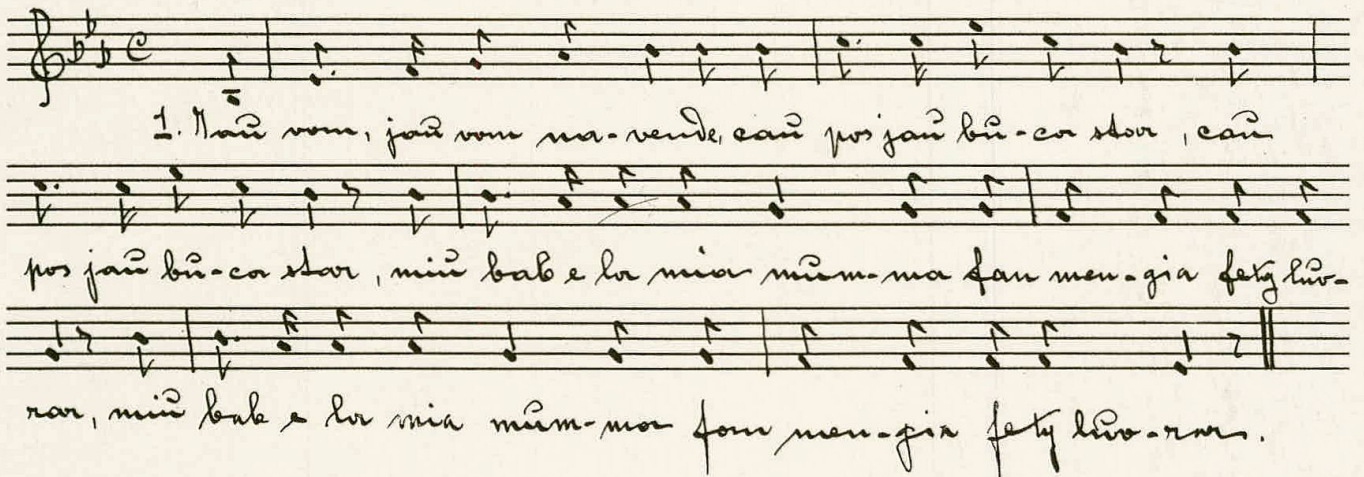 1. Jaŭ vom, jaŭ vom na-vende, caŭ pos jaŭ bŭ-ca star, caŭ
pos jaŭ bŭ-ca star, miŭ bab e la mia mŭm-ma fan men-gia fetg lŭv-
rar, miŭ bab e la mia mŭm-ma fan men-gia fetg lŭv-rar.